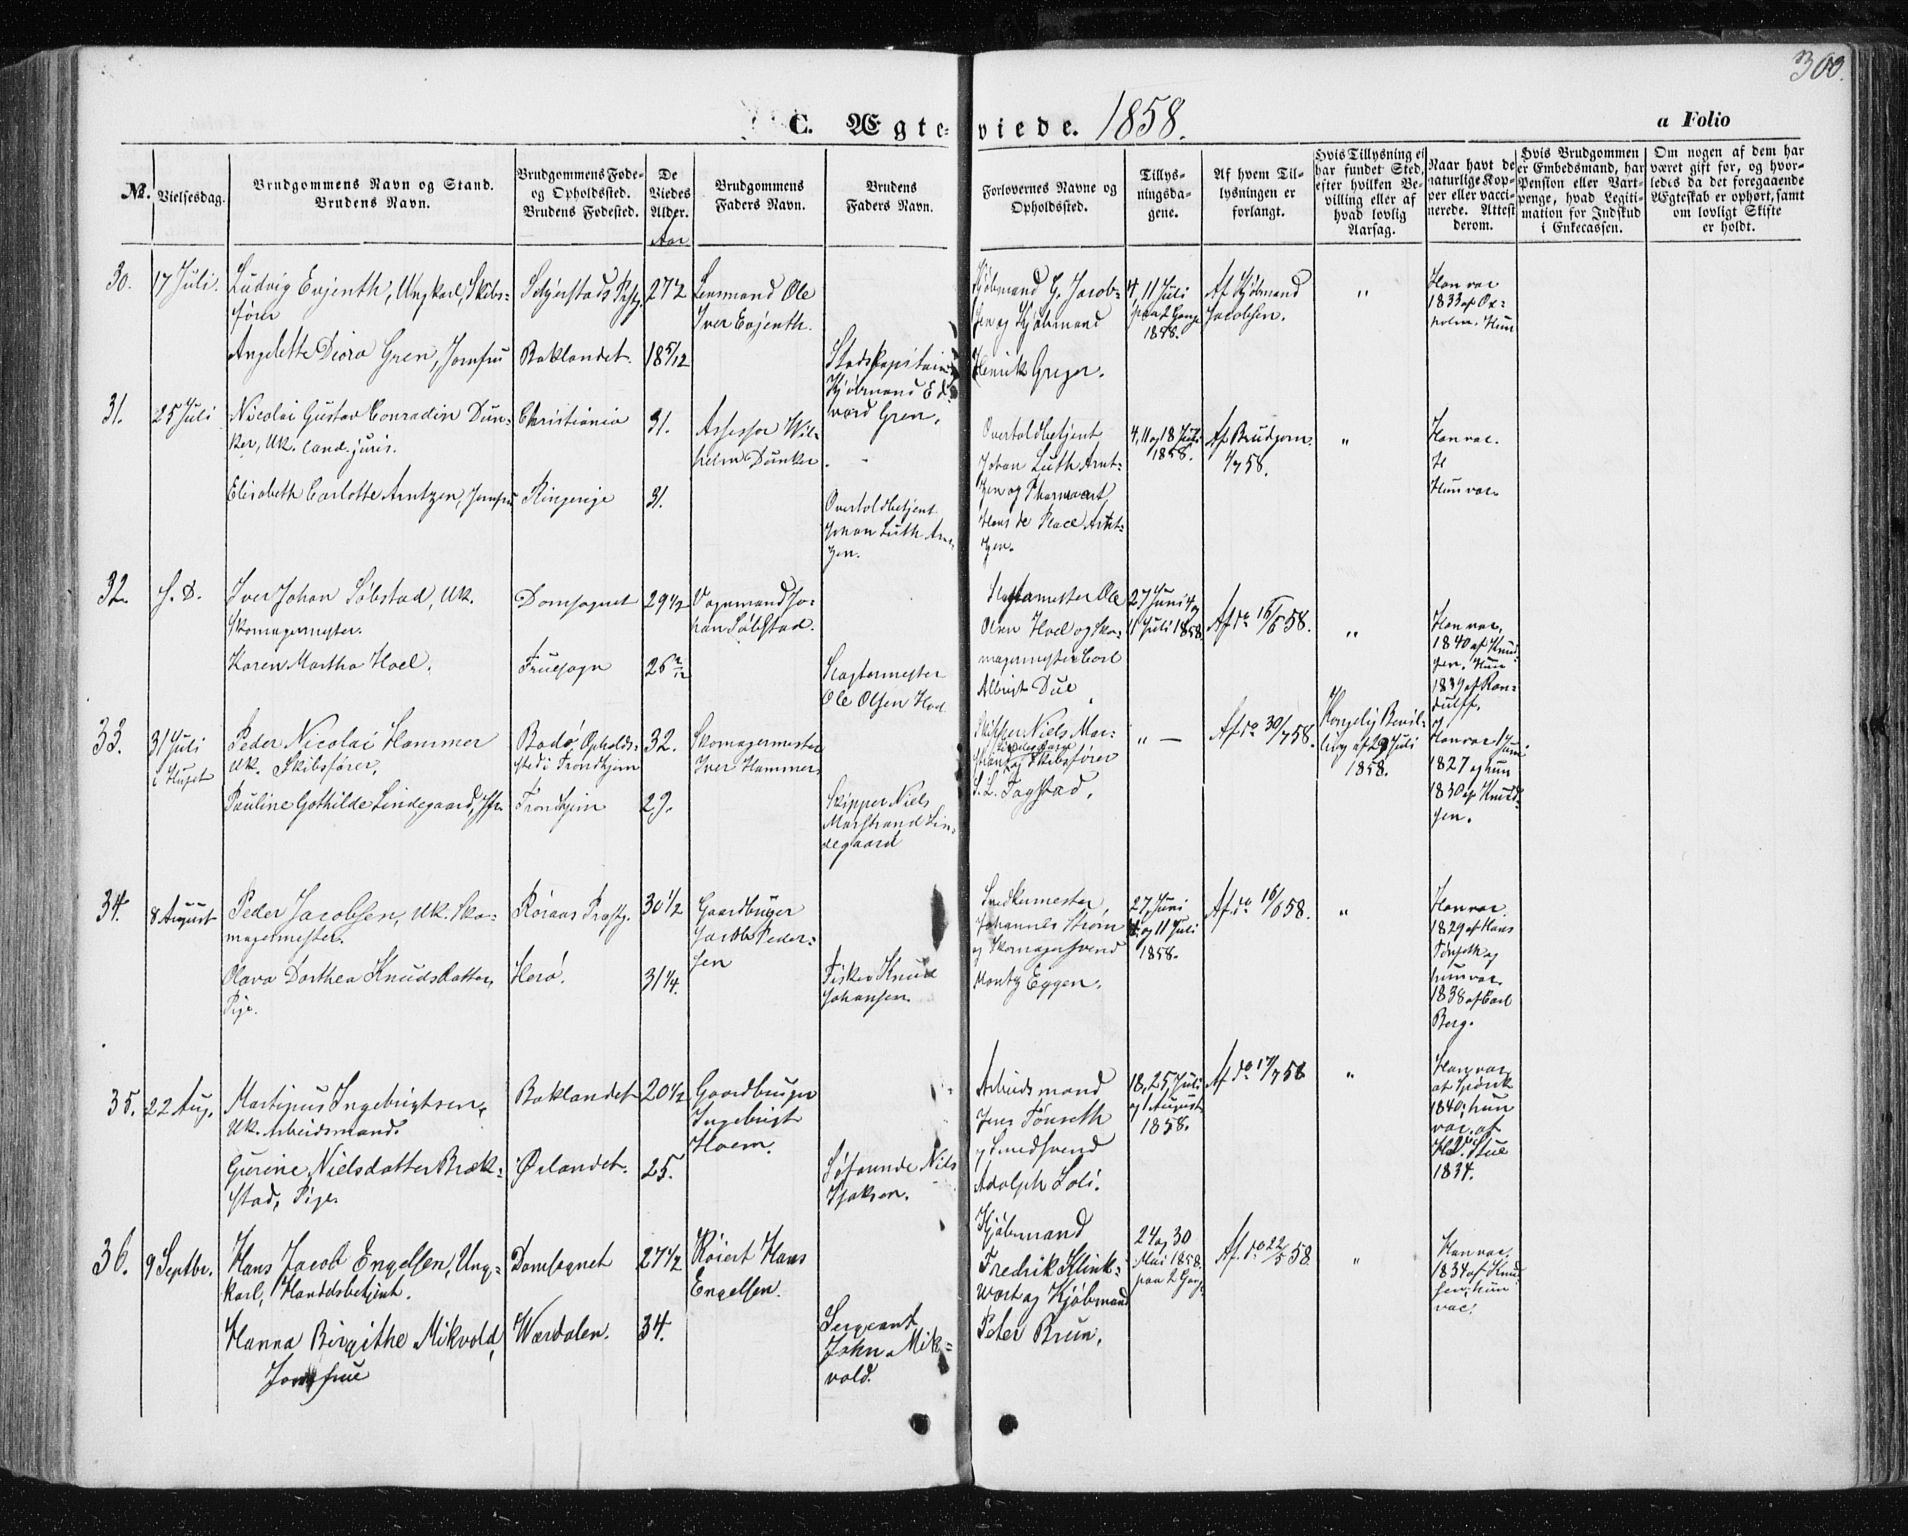 300.
C. Ægte- viede. 1858.
a Folio
No.
Vielsesdag.
Brudgommens Navn og Stand.
Brudens Navn.
Brudgommens Føde-
og Opholdssted.
Brudens Fødested.
De
Viedes
Alder.
Aar
Brudgommens
Faders Navn.
Brudens
Faders Navn.
Forlovernes Navne og
Opholdssted.
Tillys-
ningsda-
gene.
Af hvem Til-
lysningen er
forlangt.
Hvis Tillysning ei
har fundet Sted,
efter hvilken Be-
villing eller af
hvad lovlig
Aarsag.
Naar havt de
naturlige Kop-
per eller vacci-
nerede. Attest
derom.
Hvis Brudgommen
er Embedsmand, har
Pension eller Vart-
penge, hvad Legiti-
mation for Indskud
i Enkecassen.
Om nogen af dem har
været gift før, og hvor-
ledis da det foregaaende
Ægteskab er ophørt, samt
om lovligt Skifte
er holdt.
30.
17 Juli.
Ludvig Enjenth, Ungkarl, Skibs-
fører
Angelette Diora Gren, Jomfru
Baklandet.
27 1/2
18 5/12
Lensmand Ole
Iver Enjenth.
Stadskapitain
Kjøbmand Ed-
vard Gren.
Kjøbmand G. Jacob-
sen og Kjøbmand
Henrik Greger.
4, 11 Juli
paa 2 Gange
1858.
Af Kjøbmand
Jacobsen.
"
Han vac.
1833 af Ox-
holm. Hun
31.
25 Juli
Nicolai Gustav Conradin Dun-
ker, Uk. cand. juris.
Elisabeth Carlotte Arntzen, Jomfru
Christiania
Ringerige
31.
31.
Assessor Wil-
helm Dunker
Overtoldbetjent
Johan Luth Arn-
zen.
Overtoldbetjent
Johan Luth Arnt-
zen og Pharmaceut
Hans de Place Arnt-
zen.
4, 11 og 18 Juli
1858.
Af Brudgom.
1/7 58.
"
Han vac.
H
Hun vac.
32.
S. D.
Iver Johan Søbstad, Uk.
Skomagermester.
Karen Martha Hoel.
Domsognet
Fruesogn
29 1/2
26 2/12
Vognmand Jo-
han Søbstad.
Slagtermester
Ole Olsen Hoel
Slagtermester Ole
Olsen Hoel og Sko-
magermester Carl
Albrigt Due
27 Juni 4 og
11 Juli 1858
Af do 16/6 58.
"
Han vac.
1840 af Knud-
sen. Hun
1839 af Ran-
dulff.
33.
31 Juli
i Huset
Peder Nicolai Hammer
Uk. Skibsfører.
Pauline Gothilde Lindegaard, Jfr.
Bodø, Opholds-
sted i Trondhjem
Trondhjem
32.
29.
Skomagermester
Iver Hammer
Skipper Niels
Marstrand Lin-
degaard
Skipper Niels Mar-
strand Lindegaard
og Skibsfører
S. L. Fagstad.
" —
Af do 30/7 58.
Kongelig Bevil-
ling af 29 Juli
1858.
og
Han vac.
1827 og hun
1830 af Knud-
sen.
34.
8 August
Peder Jacobsen, Uk. Sko-
magermester.
Olava Dorthea Knudsdatter,
Pige.
Røraas Præstg.
Herø.
30 1/2
31 1/4.
Gaardbruger
Jacob Peder-
sen
Fisker Knud
Johansen.
Snedkermester
Johannes Strøm
og Skomagersvend
Montz Eggen.
27 Juni
4 og 11 Juli
1858.
Af do 16/6 58.
"
Han vac.
1829 af Hans
Tønseth og
hun vac.
1838 af Carl
Berg.
35.
22 Aug.
Martinus Ingebrigtsen,
Uk. Arbeidsmand.
Gurine Nielsdatter Bræk-
stad, Pige.
Baklandet
Ørlandet.
20 1/2
25.
Gaardbruger
Ingebrigt
Hoem.
Søfarende Nils
Isaksen.
Arbeidsmand
Jens Tønseth
og Smedsvend
Adolph Loli.
18, 25 Juli
og 1 August
1858.
Af do 17/7 58
"
Han vac.
af Spørck
1840; hun
vac. af
Stue
1834.
36.
9 Septbr.
Hans Jacob Engelsen, Ung-
karl, Handelsbetjent.
Hanna Birgithe Mikvold,
Jomfrue
Domsognet
Værdalen.
27 1/2
34.
Røiert Hans
Engelsen.
Sergeant
John Mik-
vold.
Kjøbmand
Fredrik Klink-
wort og Kjøbmand
Peter Brun.
24 og 30
Mai 1858.
paa 2 Gang.
Af do 22/5 58.
"
Han vac.
1834 af Knud-
sen; hun
vac.